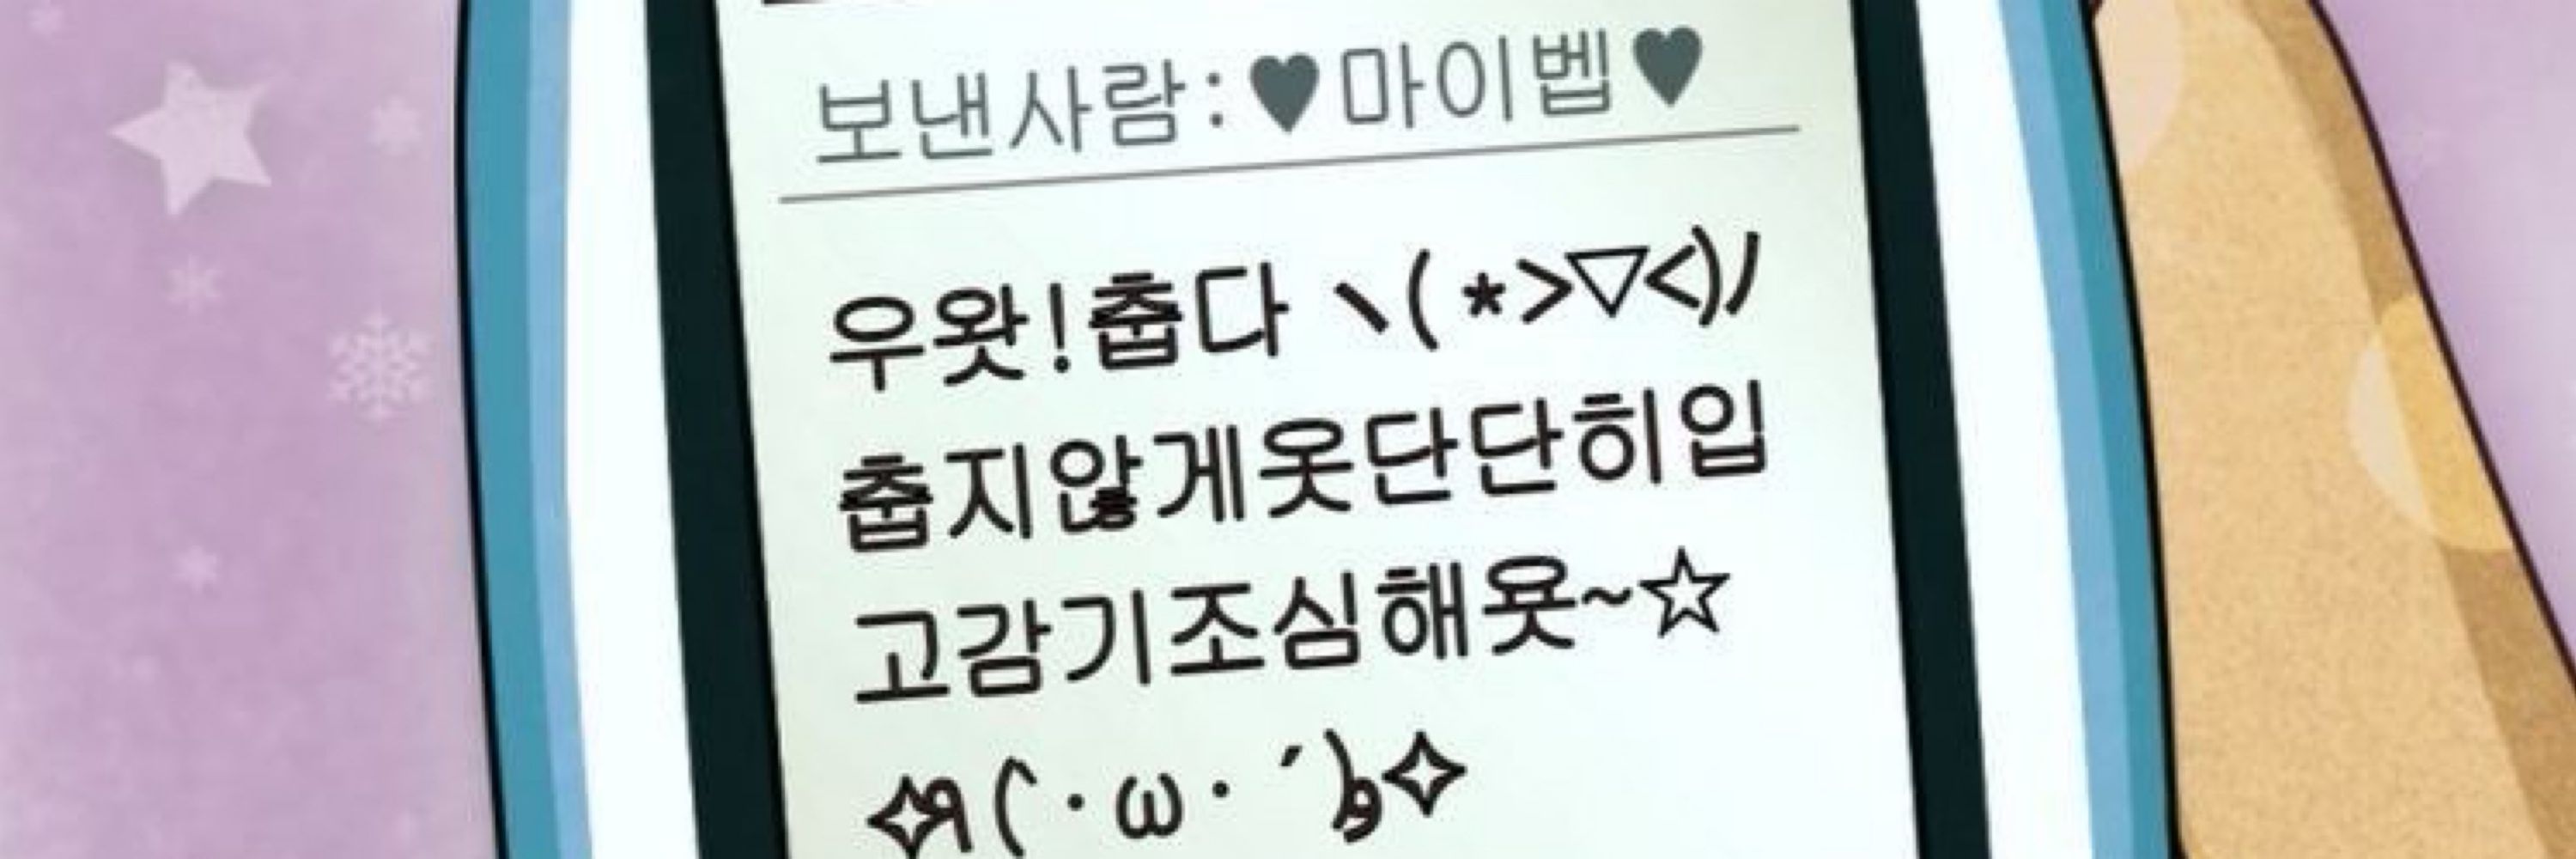 보낸사람:♥마이벱♥
우왓!춥다ヽ(*>▽<)ノ
춥지않게옷단단히입
고감기조심해욧~☆
✧ql(･ω･´)و✧